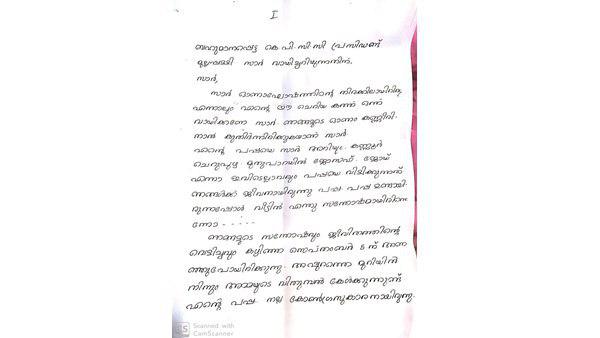 I
ബഹുമാനപ്പെട്ട കെ.പി.സി.സി പ്രസിഡണ്ട്
മുല്ലപ്പള്ളി സാർ വായിച്ചറിയുന്നതിന്,
സാർ,
സാർ ഓണാഘോഷത്തിന്റെ തിരക്കിലായിരിക്കും
എന്നാലും എന്റെ ഈ ചെറിയ കത്ത് ഒന്ന്
വായിക്കണേ സാർ. ഞങ്ങളുടെ ഓണം കണ്ണീരിൽ
ഞാൻ കുതിർന്നിരിക്കുകയാണ് സാർ.
എന്റെ പപ്പയെ സാർ അറിയും. കണ്ണൂർ
ചെറുപുഴ മുതുപാറയിൽ ജോസഫ്. ജോയ്
എന്നാ ഇവിടെല്ലാവരും പപ്പയെ വിളിക്കുന്നത്
ഞങ്ങൾക്ക് ജീവനായിരുന്നു പപ്പ. പപ്പ ഉണ്ടായി
രുന്നപ്പോൾ വീട്ടിൽ എന്നു സന്തോഷമായിരുന്ന
ന്നോ - - - - -
ഞങ്ങളുടെ സന്തോഷവും ജീവിതത്തിന്റെ
വെളിച്ചവും കഴിഞ്ഞ സെപ്തംബർ 5 ന് അണ
ഞ്ഞുപോയിരിക്കുന്നു. അപ്പുറത്തെ മുറിയിൽ
നിന്നും അമ്മയുടെ വിതുമ്പൽ കേൾക്കുന്നുണ്ട്
എന്റെ പപ്പ നല്ല കോൺഗ്രസുകാരനായിരുന്നു.
CS Scanned with
CamScanner